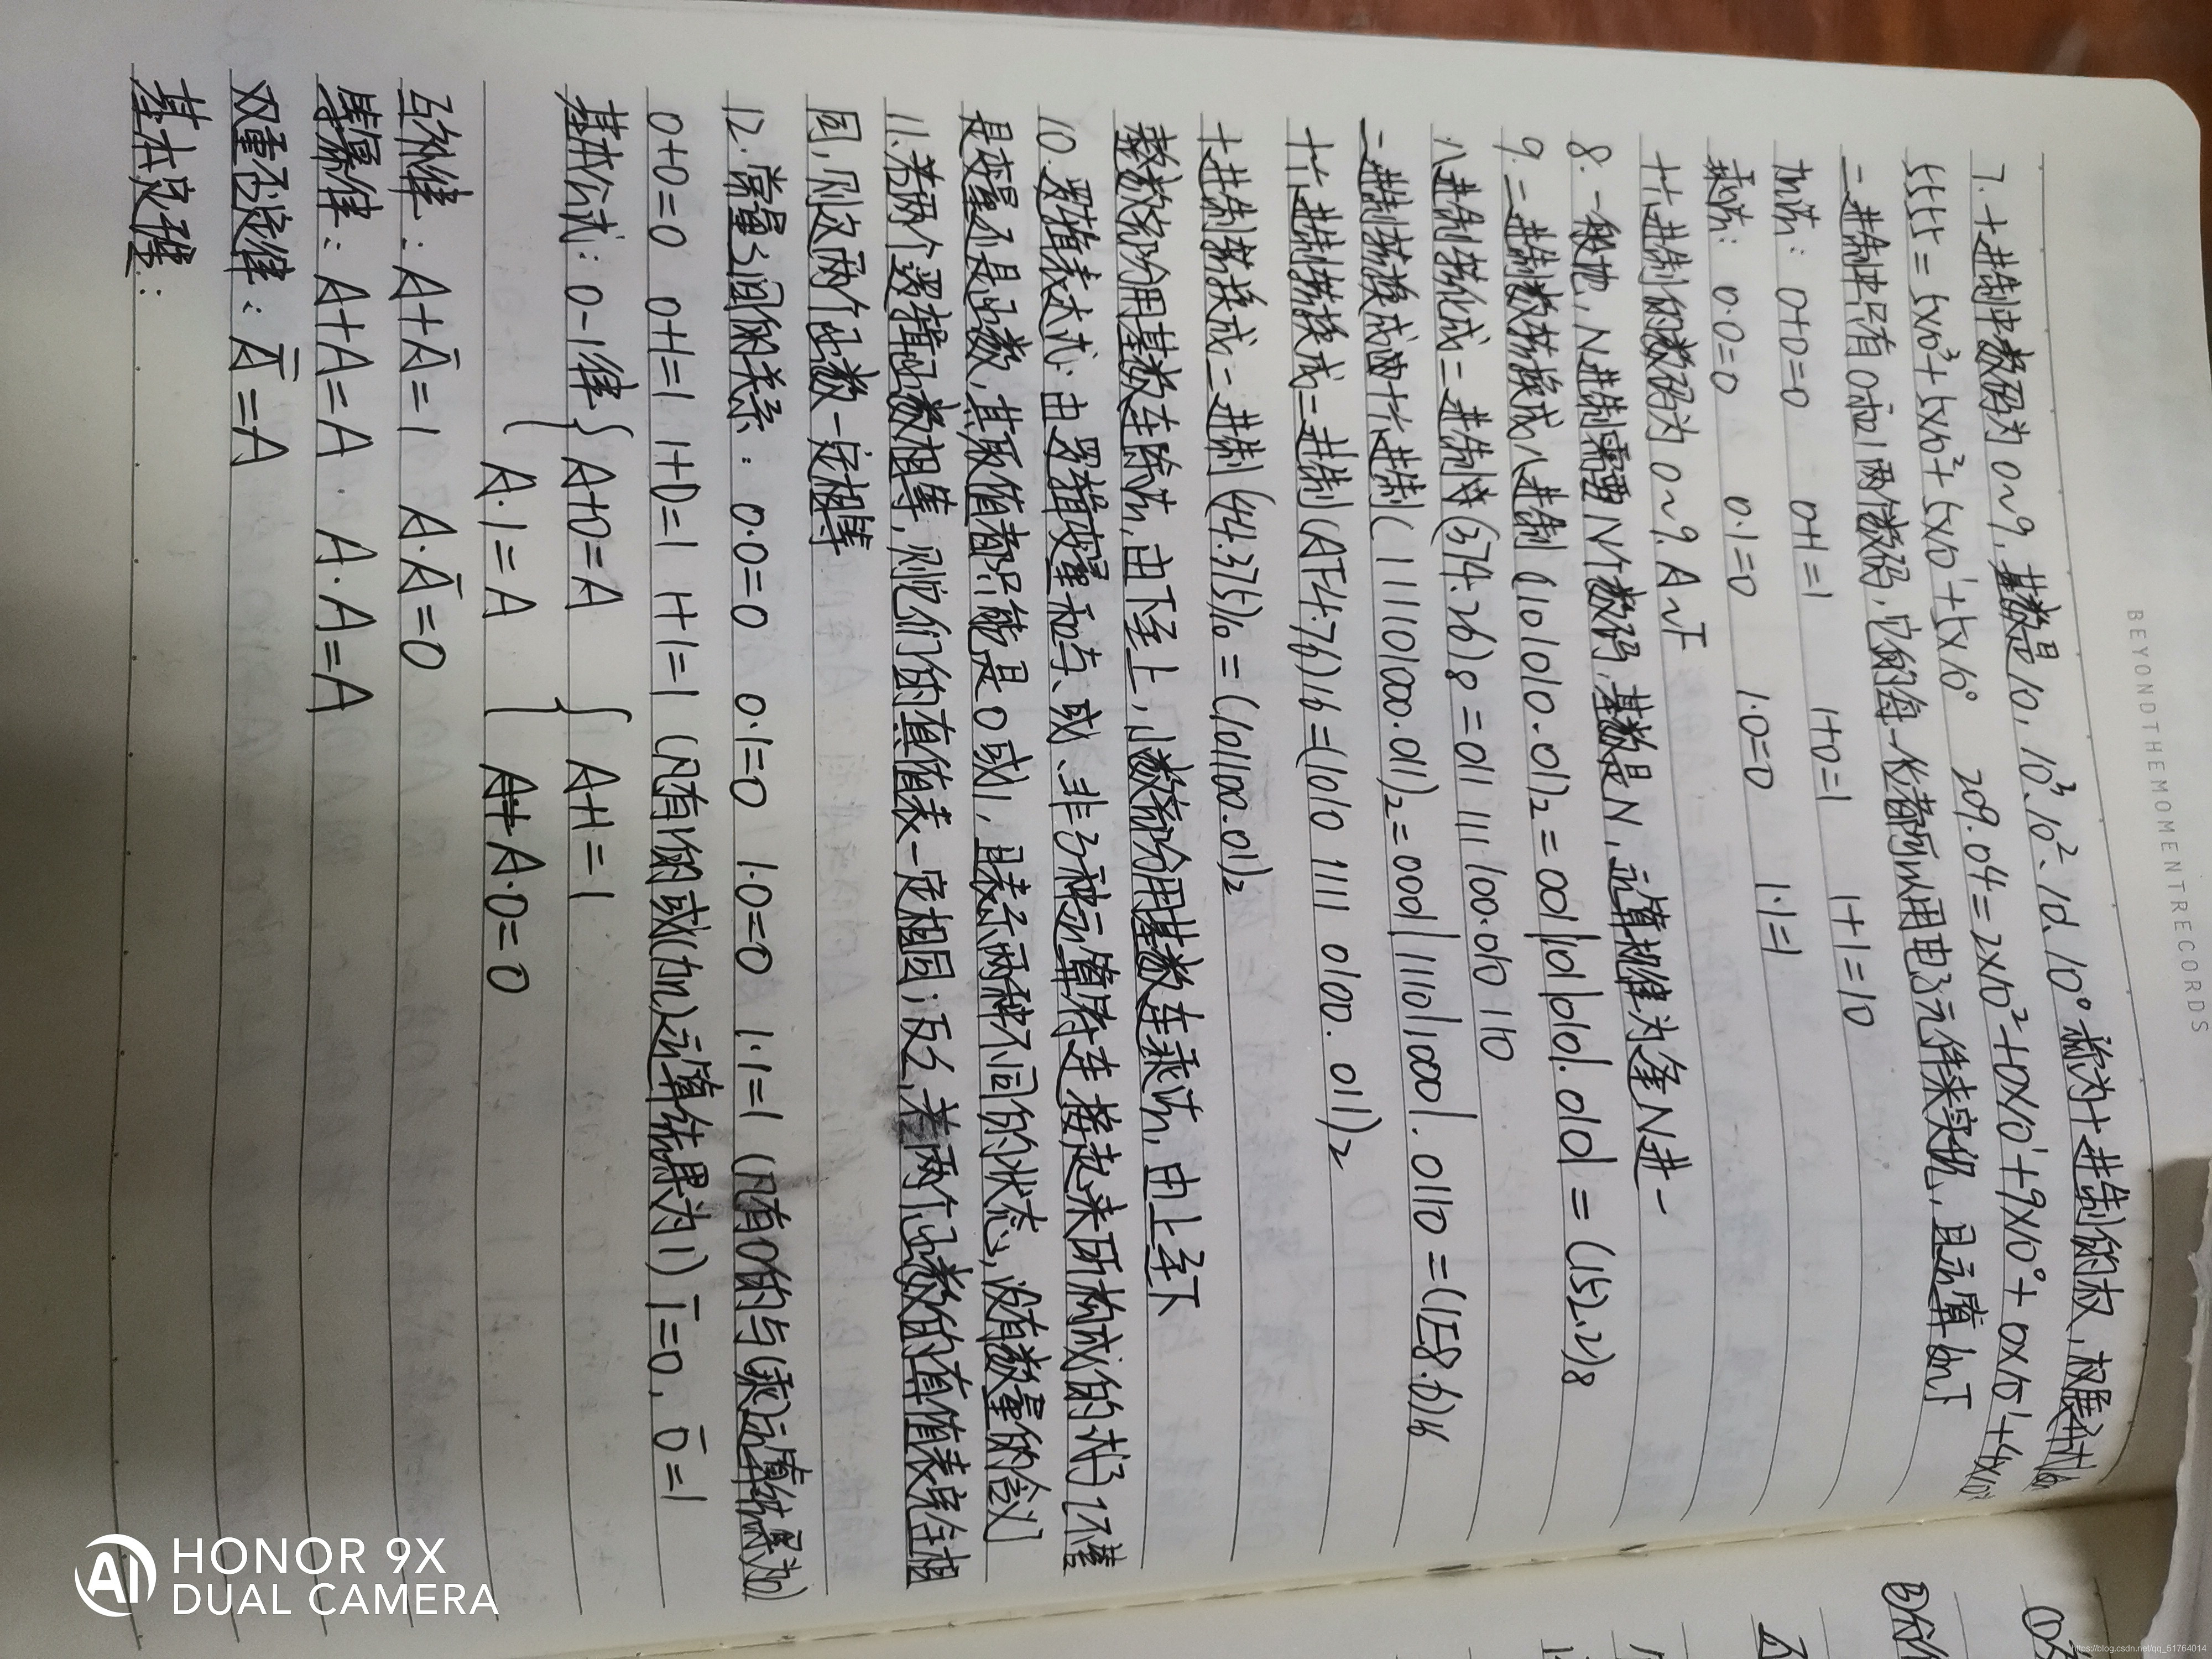 BEYONDTHEMOMENTRECORDS
7.十进制中数码为0~9,基数是10,10³、10²、10¹、10⁰称为十进制的权,权展开式
5555=5×10³+5×10²+5×10¹+5×10⁰ 209.04=2×10²+0×10¹+9×10⁰+0×10⁻¹+4×10⁻²
二进制中只有0和1两个数码,它的每一位都可以用电子元件来实现,且运算如下
加法: 0+0=0 0+1=1 1+0=1 1+1=10
乘法: 0·0=0 0·1=0 1·0=0 1·1=1
十六进制的数码为0~9.A~F
8.一般地,N进制需要N个数码,基数是N,运算规律为逢N进一
9.二进制数转换成八进制(1101010.01)₂=001|101|010.010=(152.2)8
八进制转化成二进制(374.26)8=011 111 100.010 110
二进制转换成十六进制(111101000.011)₂=0001|1110|1000.0110=(1E8.6)16
十六进制转换成二进制(AF4.76)16=(1010 1111 0100.011)₂
十进制转换成二进制(44.375)10=(101100.011)₂
整数部分用基数连除法,由下至上,小数部分用基数连乘法,由上至下
10.逻辑表达式:由逻辑变量和与、或、非3种运算符连接起来所构成的式子(不管
是变量还是函数,其取值都只能是0或1,且表示两种不同的状态,没有数量的含义)
11.若两个逻辑函数相等,则它们的真值表一定相同;反之,若两个函数的真值表完全相
同,则这两个函数一定相等
12.常量之间的关系: 0·0=0 0·1=0 1·0=0 1·1=1 (凡有0的与(乘)运算结果为0)
0+0=0 0+1=1 1+0=1 1+1=1 (凡有1的或(加)运算结果为1) 1̅=0, 0̅=1
基本公式:0-1律{A+0=A {A+1=1
A·1=A A·0=0
互补律:A+A̅=1 A·A̅=0
等幂律:A+A=A. A·A=A
双重否定律:A̿=A
基本定理:
HONOR 9X
DUAL CAMERA
https://blog.csdn.net/qq_51764014